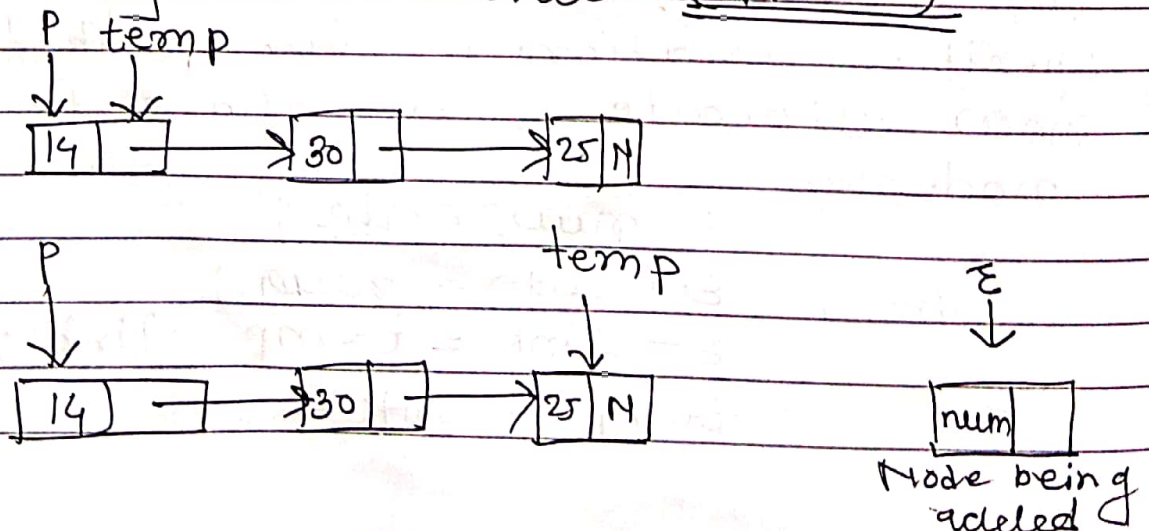 P temp
14 30 25 N
P temp ε
14 30 25 N num
Node being
added